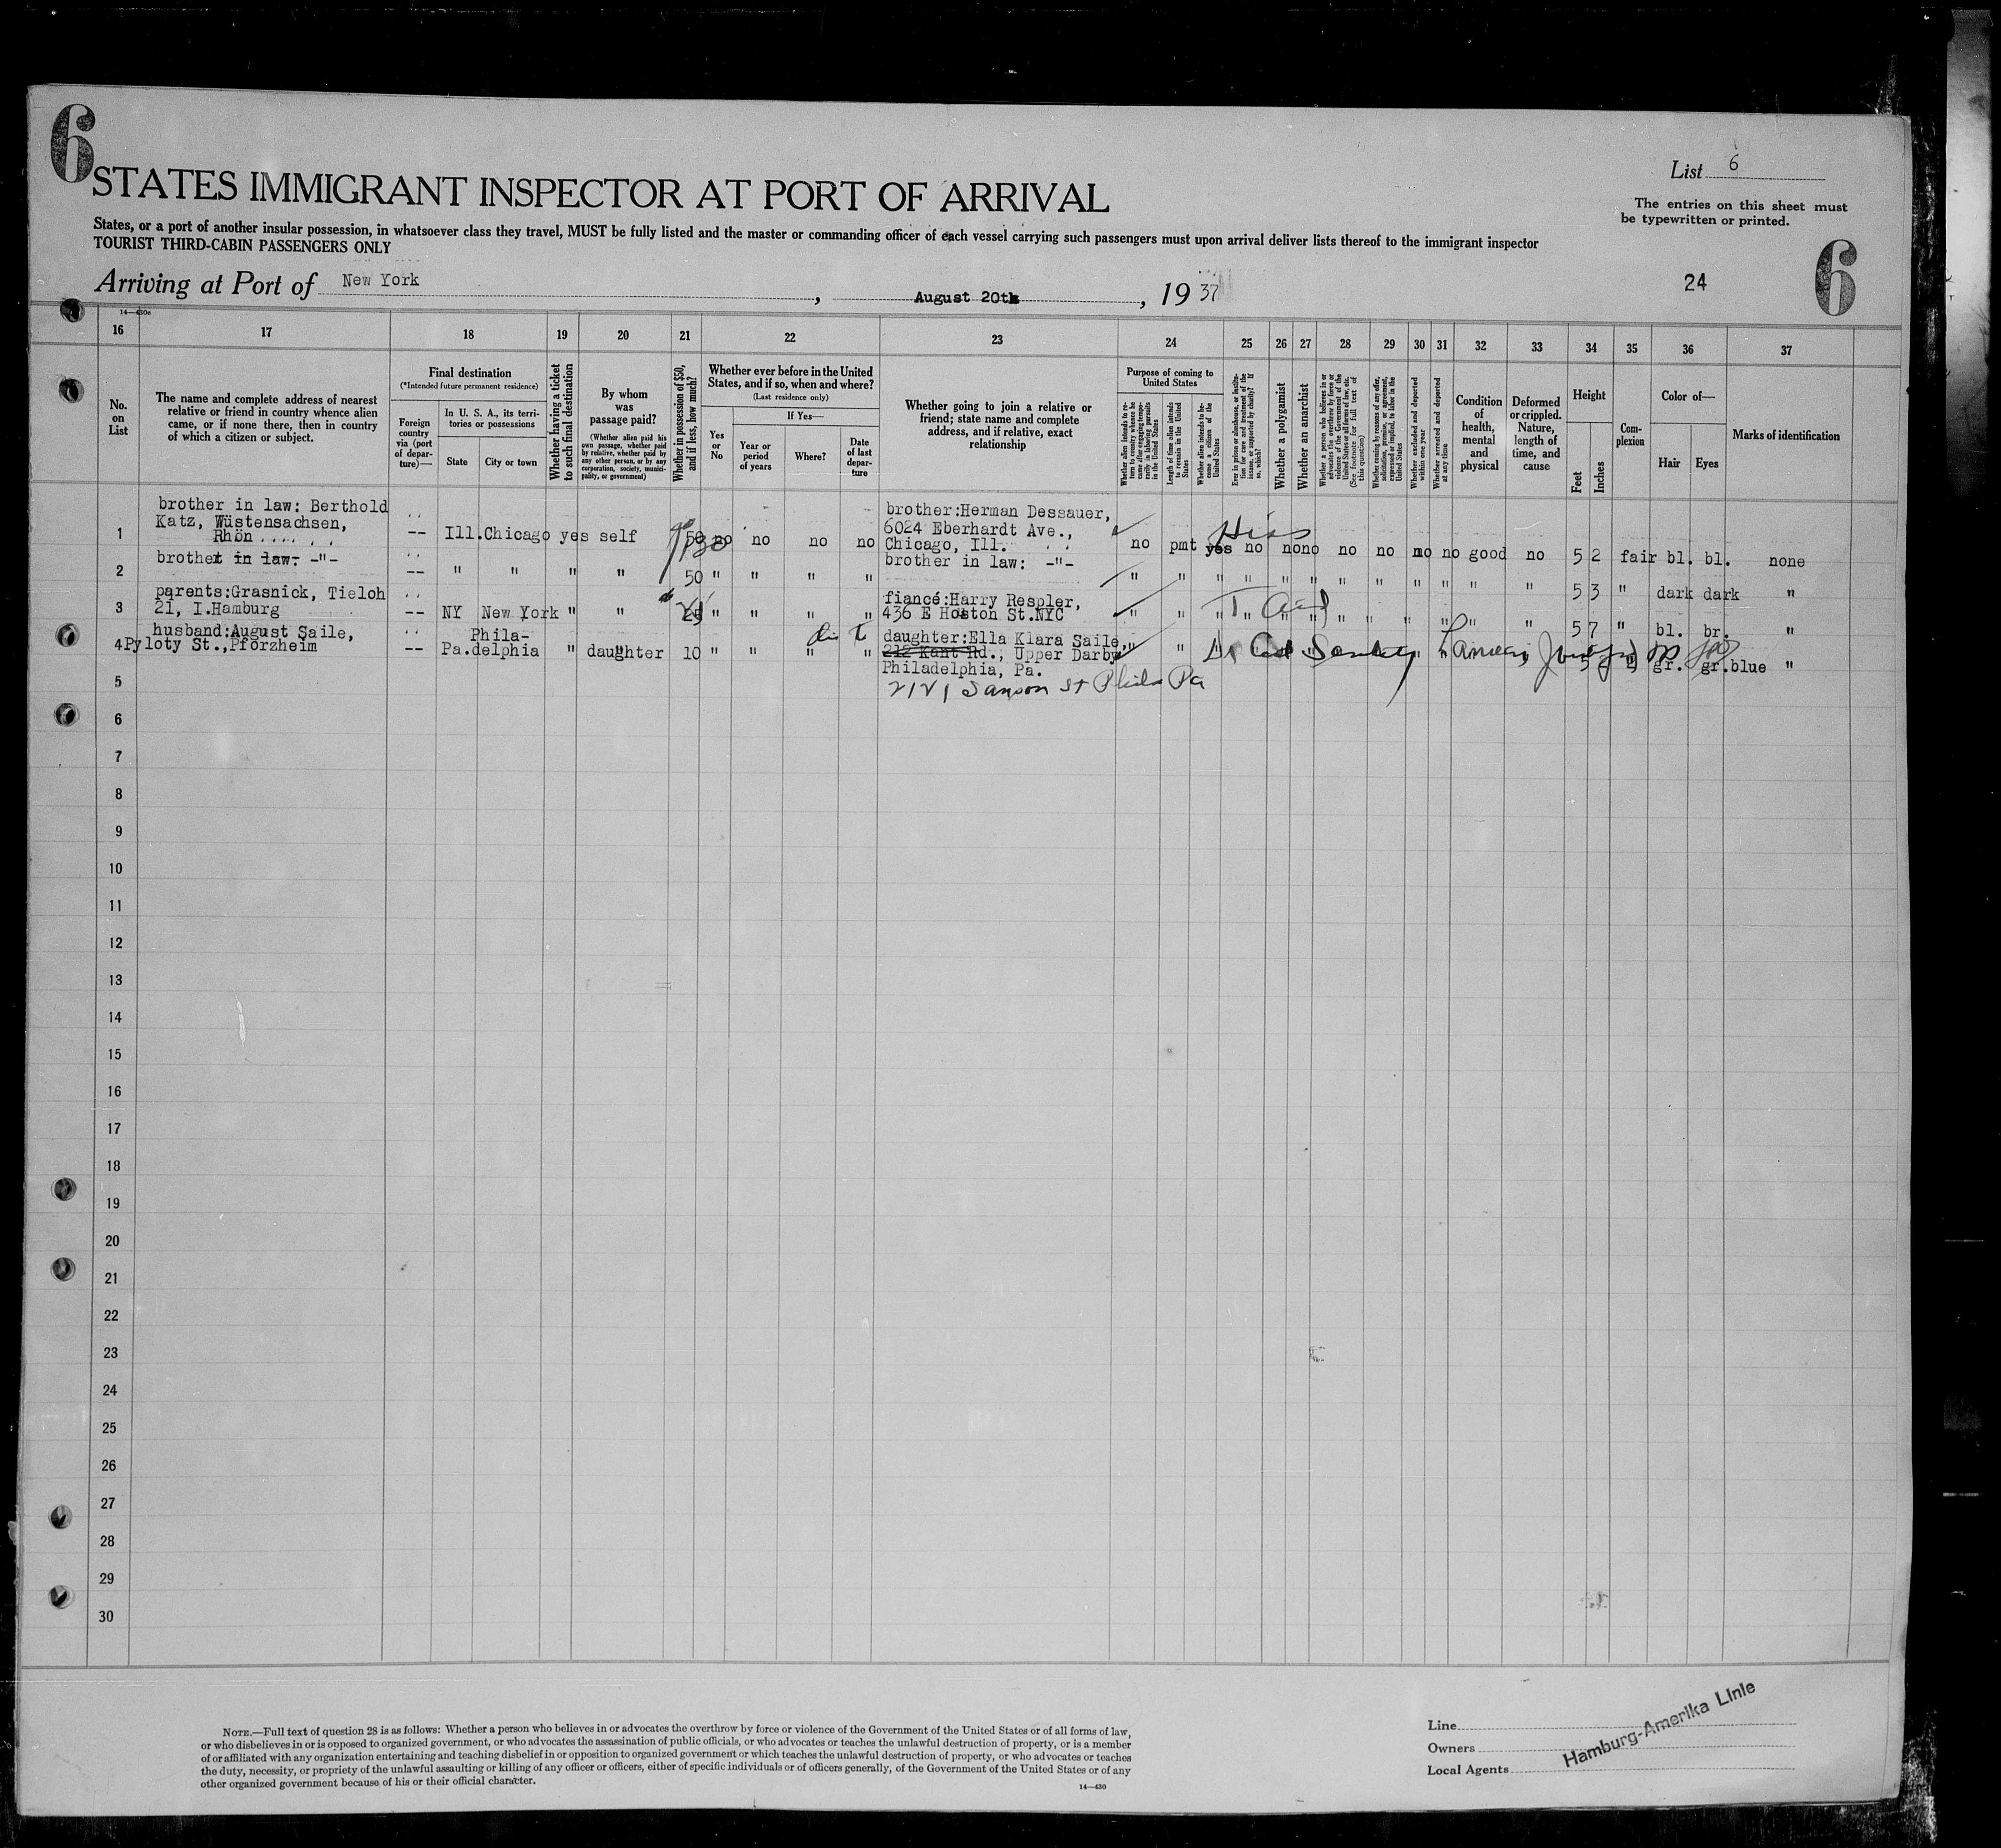 6
List 6
STATES IMMIGRANT INSPECTOR AT PORT OF ARRIVAL
The entries on this sheet must
be typewritten or printed.
States, or a port of another insular possession, in whatsoever class they travel, MUST be fully listed and the master or commanding officer of each vessel carrying such passengers must upon arrival deliver lists thereof to the immigrant inspector
TOURIST THIRD-CABIN PASSENGERS ONLY
Arriving at Port of New York, August 20th, 1937
24
6
16 17 18 19 20 21 22 23 24 25 26 27 28 29 30 31 32 33 34 35 36 37
No.
on
List
The name and complete address of nearest
relative or friend in country whence alien
came, or if none there, then in country
of which a citizen or subject.
Final destination
(*Intended future permanent residence)
Foreign
country
via (port
of depar-
ture)—
In U. S. A., its terri-
tories or possessions
State
City or town
Whether having a ticket
to such final destination
By whom
was
passage paid?
(Whether alien paid his
own passage, whether paid
by relative, whether paid by
any other person, or by any
corporation, society, munici-
pality, or government)
Whether in possession of $50,
and if less, how much?
Whether ever before in the United
States, and if so, when and where?
(Last residence only)
Yes
or
No
If Yes—
Year or
period
of years
Where?
Date
of last
depar-
ture
Whether going to join a relative or
friend; state name and complete
address, and if relative, exact
relationship
Purpose of coming to
United States
Whether alien intends to re-
turn to country whence he
came after engaging tempo-
rarily in laboring pursuits
in the United States
Length of time alien intends
to remain in the United
States
Whether alien intends to be-
come a citizen of the
United States
Ever in prison or almshouse, or institu-
tion for care and treatment of the
insane, or supported by charity? If
so, which?
Whether a polygamist
Whether an anarchist
Whether a person who believes in or
advocates the overthrow by force or
violence of the Government of the
United States or all forms of law, etc.
(See footnote for full text of
this question)
Whether coming by reason of any offer,
solicitation, promise, or agreement,
expressed or implied, to labor in the
United States
Whether excluded and deported
within one year
Whether arrested and deported
at any time
Condition
of
health,
mental
and
physical
Deformed
or crippled.
Nature,
length of
time, and
cause
Height
Feet
Inches
Com-
plexion
Color of—
Hair
Eyes
Marks of identification
brother in law: Berthold
Katz, Wüstensachsen,
Rhön
1 -- Ill. Chicago yes self 50 no no no no
brother: Herman Dessauer,
6024 Eberhardt Ave.,
Chicago, Ill.
Hias
no pmt yes no no no no no no no good no 5 2 fair bl. bl. none
brother in law: -"-
2 -- " " " " 50 " " " "
brother in law: -"-
" " " " " " " " " " " " 5 3 " dark dark "
parents:Grasnick, Tieloh
21, I.Hamburg
3 -- NY New York " " 25 " " " "
fiancé:Harry Respler,
436 E Hoston St.NYC
" " " " " " " " 5 7 " bl. br. "
husband:August Saile,
4 Pyloty St.,Pforzheim
-- Pa. Phila-
delphia " daughter 10 " " " "
daughter:Ella Klara Saile,
212 Kant Rd., Upper Darby
Philadelphia, Pa.
2121 Sanson St Phila Pa
gr. gr.blue "
5
6
7
8
9
10
11
12
13
14
15
16
17
18
19
20
21
22
23
24
25
26
27
28
29
30
NOTE.—Full text of question 28 is as follows: Whether a person who believes in or advocates the overthrow by force or violence of the Government of the United States or of all forms of law,
or who disbelieves in or is opposed to organized government, or who advocates the assassination of public officials, or who advocates or teaches the unlawful destruction of property, or is a member
of or affiliated with any organization entertaining and teaching disbelief in or opposition to organized government or which teaches the unlawful destruction of property, or who advocates or teaches
the duty, necessity, or propriety of the unlawful assaulting or killing of any officer or officers, either of specific individuals or of officers generally, of the Government of the United States or of any
other organized government because of his or their official character.
14—430
Line
Owners
Local Agents
Hamburg-Amerika Linie